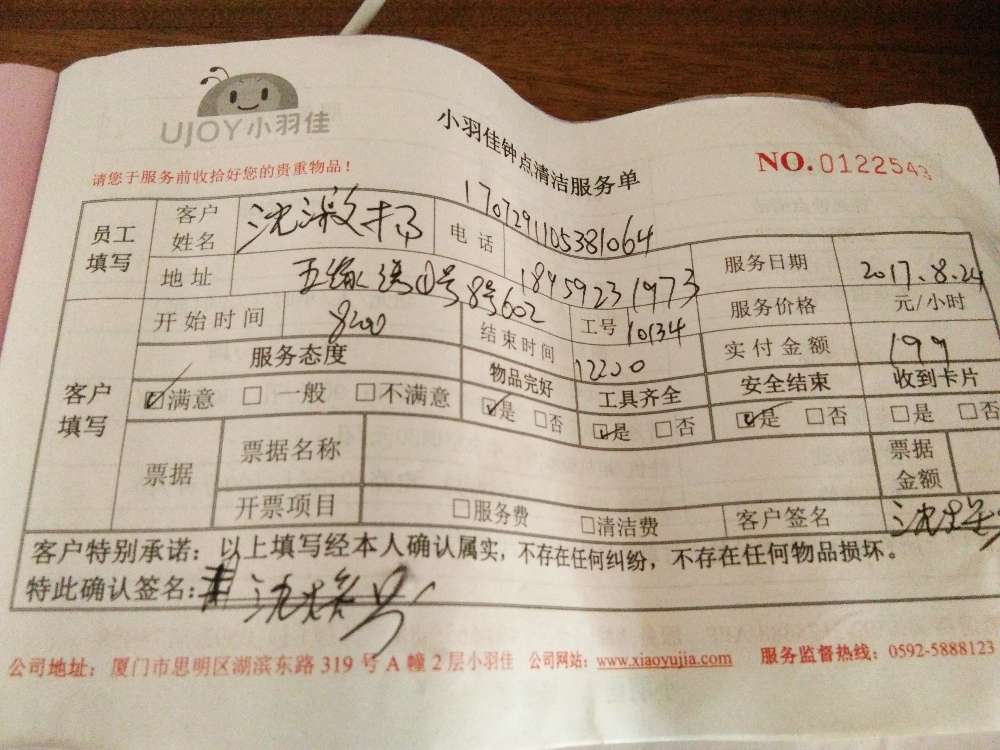 UJOY小羽佳
小羽佳钟点清洁服务单
NO.0122543
请您于服务前收拾好您的贵重物品！
1707291105381064
员工填写
客户姓名 沈
电话 18459231973
服务日期 2017.8.24
地址 8号602
工号 10134
服务价格 元/小时
客户填写
开始时间 8:00
结束时间 12:00
实付金额 199
服务态度 物品完好 工具齐全 安全结束 收到卡片
☑满意 □一般 □不满意 ☑是 □否 ☑是 □否 ☑是 □否 □是 □否
票据 票据名称 票据金额
开票项目 □服务费 □清洁费 客户签名 沈
客户特别承诺：以上填写经本人确认属实，不存在任何纠纷，不存在任何物品损坏。
特此确认签名： 沈
公司地址：厦门市思明区湖滨东路 319 号 A 幢 2 层小羽佳 公司网站：www.xiaoyujia.com 服务监督热线：0592-5888123